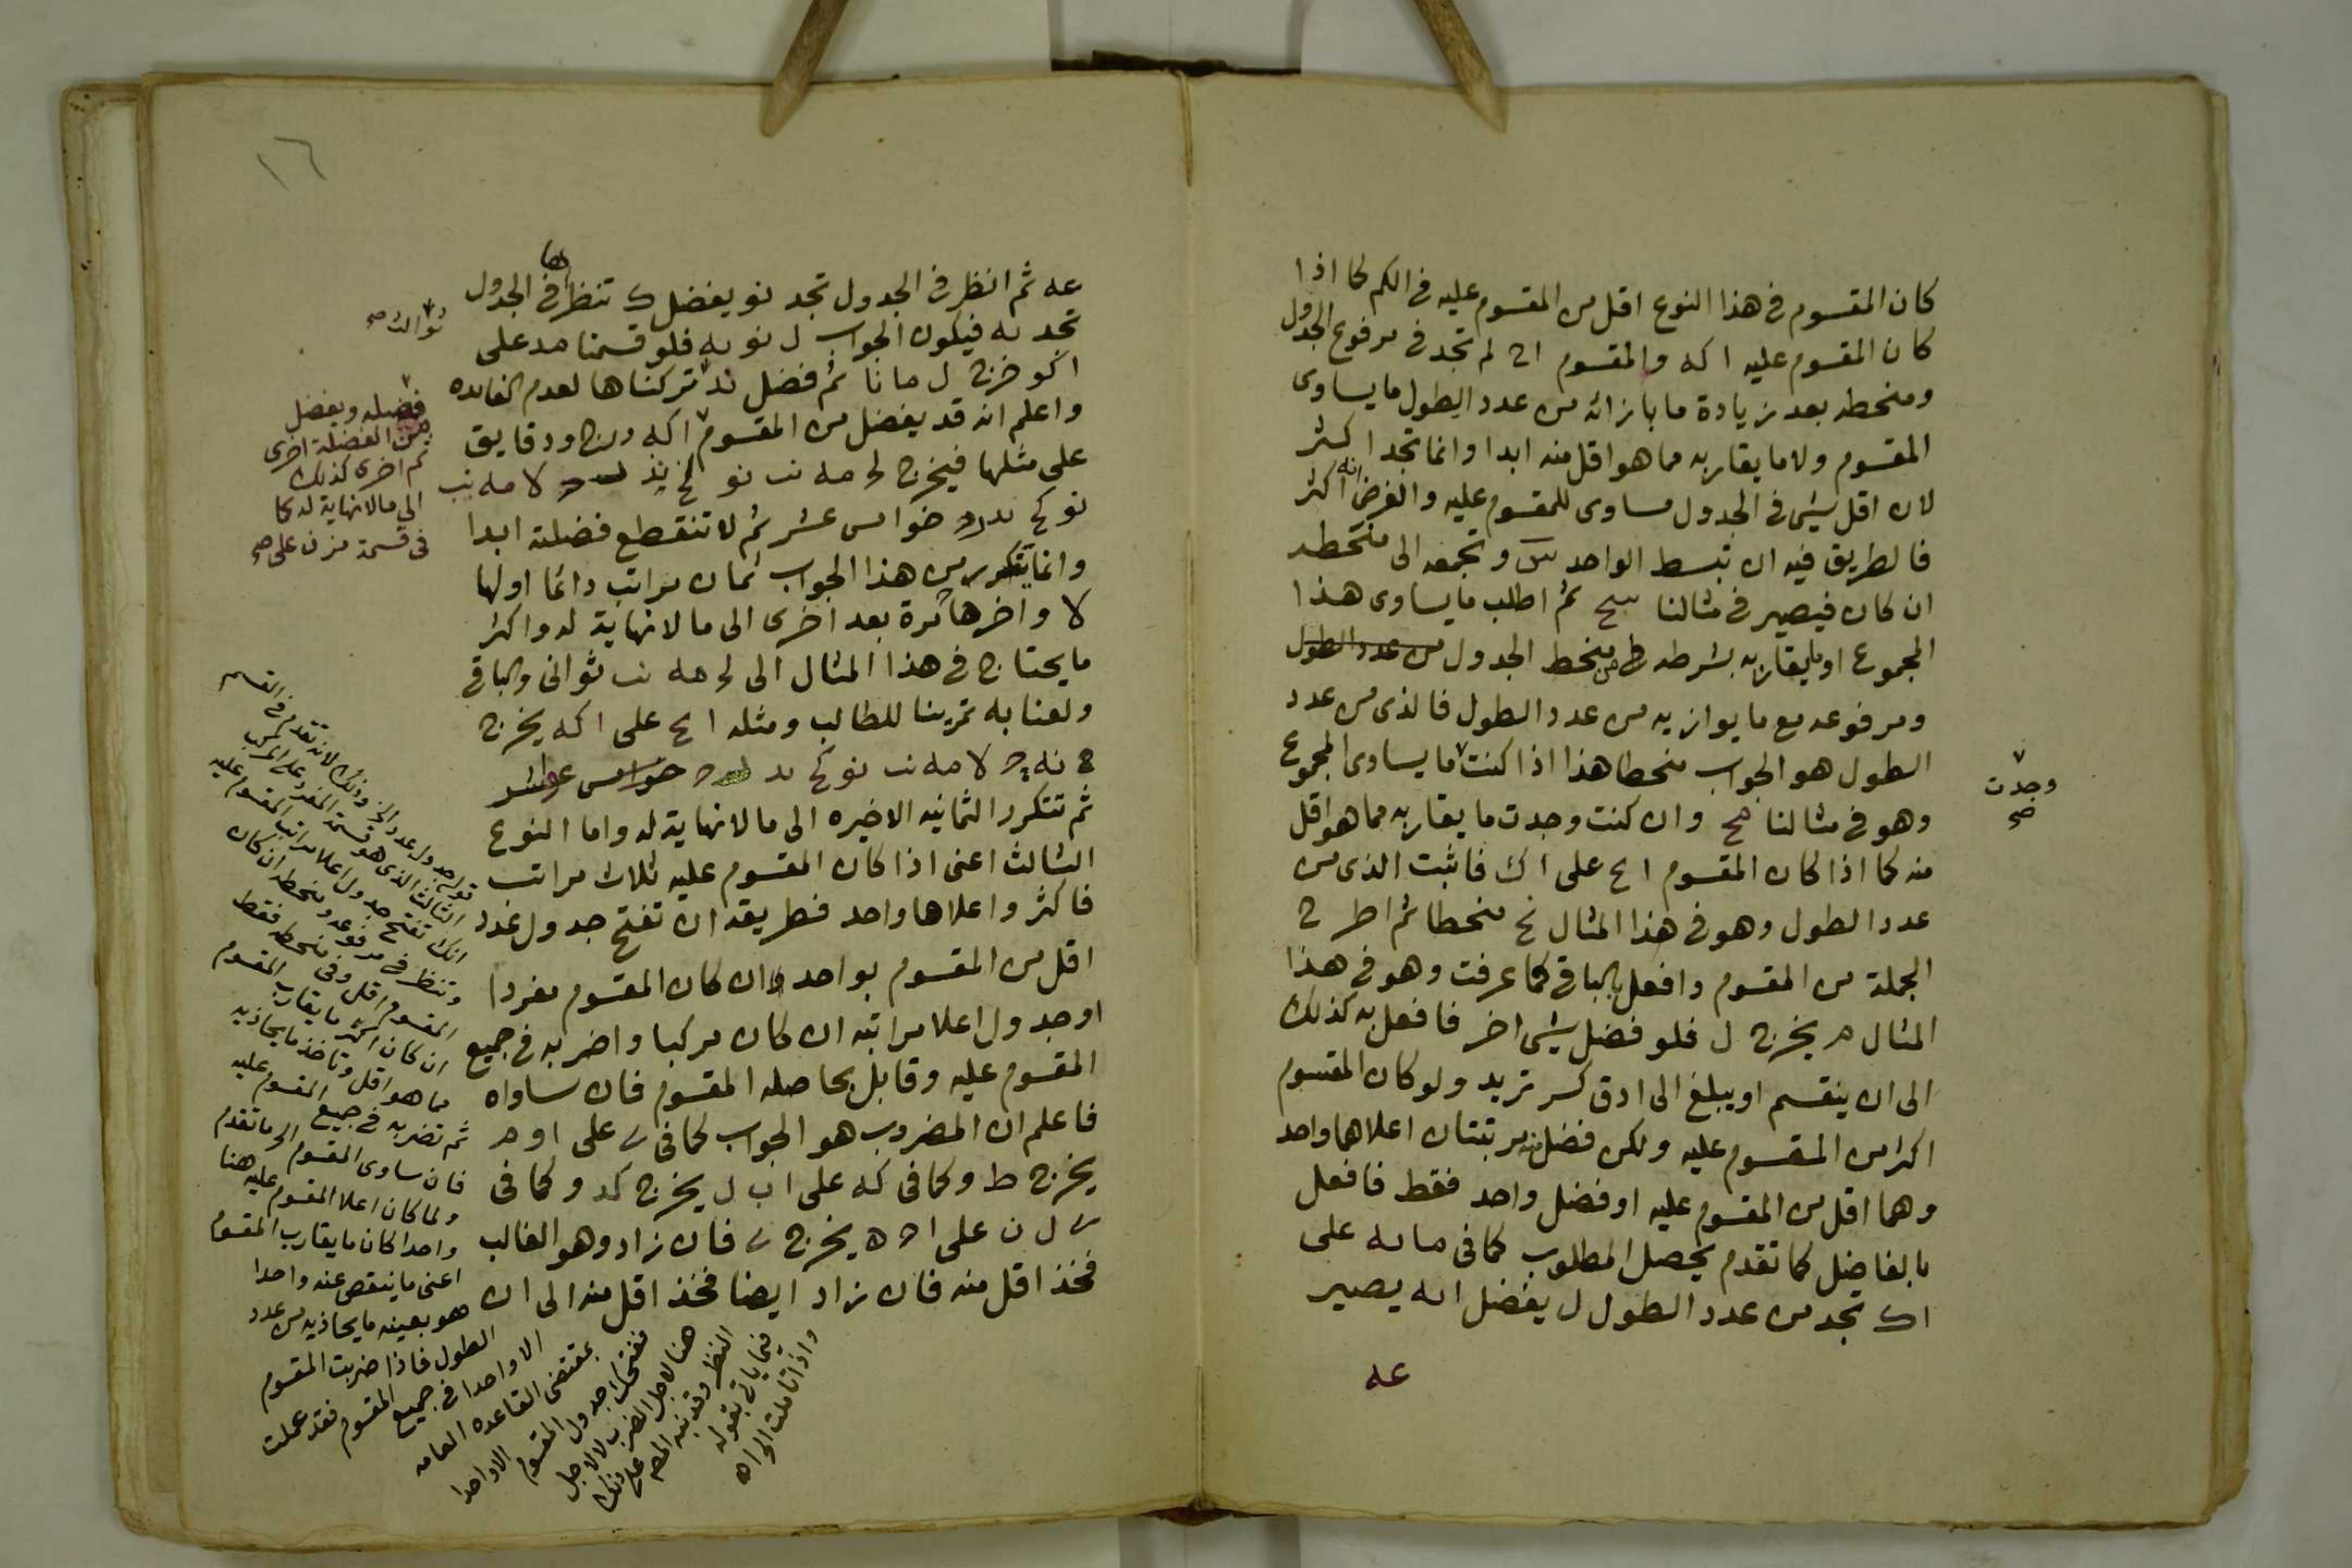 كان المقسوم في هذا النوع اقل من المقسوم عليه في الكم كما اذا
كان المقسوم عليه ا كه والمقسوم ا ح لم تجد في مرفوع الجدول
ومنحطه بعد زيادة ما بازائه من عدد الطول ما يساوى
المقسوم ولا ما يقاربه مما هو اقل منه ابدا وانما تجد اكثر
لان اقل شيى في الجدول مساوى للمقسوم عليه والفرض انه اكثر
فالطريق فيه ان تبسط الواحد س وتجمعه الى منحطه
ان كان فيصير في مثالنا سح ثم اطلب ما يساوى هذا
المجموع او ما يقاربه بشرطه في منحط الجدول من عدد الطول
ومرفوعه مع ما يوازيه من عدد الطول فالذى من عدد
الطول هو الجواب منحطا هذا اذا كنت ما يساوى المجموع
وجدت
صح
وهو في مثالنا مح وان كنت وجدت ما يقاربه مما هو اقل
منه كما اذا كان المقسوم ا ح على ا ك فاثبت الذى من
عدد الطول وهو في هذا المثال نح منحطا ثم اطرح
الجملة من المقسوم وافعل بالباقي كما عرفت وهو في هذا
المثال م يخرج ل فلو فضل شيى اخر فافعل به كذلك
الى ان ينقسم او يبلغ الى ادق كسر تريد ولو كان المقسوم
اكثر من المقسوم عليه ولكن فضل منه مرتبتان اعلاهما واحد
وهما اقل من المقسوم عليه او فضل واحد فقط فافعل
بالفاضل كما تقدم يحصل المطلوب كما في ما ىه على
ا ك تجد من عدد الطول ل يفضل ا ىه يصير
عه
١٦
عه ثم انظر في الجدول تجد نو يفضل ك تنظرها في الجدول
تجد ىه فيكون الجواب ل نو ىه فلو قسمنا مد على
ثوالث صح
ا كو خرج ل ما نا ثم فضل ند تركناها لعدم الفايده
واعلم انه قد يفضل من المقسوم ا كه درج ودقايق
فضيله ويفضل
من الفضلة اخرى
ثم اخرى كذلك
الى ما لا نهاية له كما
في قسمة على صح
على مثلها فيخرج لح مه نب نو كح لا مه نب
نو كح خوامس عشر ثم لا تنقطع فضلته ابدا
وانما يتكرر من هذا الجواب ثمان مراتب دائما اولها
لا واخرها مرة بعد اخرى الى ما لا نهاية له واكثر
ما يحتاج في هذا المثال الى لح مه نب ثوانى والباقي
ولعنا به تمرينا للطالب ومثله ا ح على ا كه يخرج
لا مه نب نو كح خوامس عواشر
ثم تتكرر الثمانيه الاخيره الى ما لا نهاية له واما النوع
الثالث اعنى اذا كان المقسوم عليه ثلاث مراتب
فاكثر واعلاها واحد فطريقه ان تفتح جدول عدد
اقل من المقسوم بواحد ان كان المقسوم مفردا
او جدول اعلا مراتبه ان كان مركبا واضربه في جميع
المقسوم عليه وقابل بحاصله المقسوم فان ساواه
فاعلم ان المضروب هو الجواب كما في ى على ا و م
يخرج ط وكما في كه على ا ب ل يخرج كد وكما في
ى ل ن على ا ح ه يخرج ى فان زاد وهو الغالب
فخذ اقل منه فان زاد ايضا فخذ اقل منه الى ان
قوله جدول عدد الخ وذلك لانه تقدم في القسم
الثالث الذى هو قسمة المفرد على المركب
انك تفتح جدول اعلا مراتب المقسوم عليه
وتنظر في مرفوعه ومنحطه ان كان
المقسوم اقل وفي منحطه فقط
ان كان اكثر ما يقارب المقسوم
مما هو اقل وتاخذ ما يحاذيه
ثم تضربه في جميع المقسوم عليه
فان ساوى المقسوم الخ ما تقدم
ولما كان اعلا المقسوم عليه هنا
واحدا كان ما يقارب المقسوم
اعنى ما ينقص عنه واحدا
هو بعينه ما يحاذيه من عدد
الطول فاذا ضربت المقسوم
الا واحدا في جميع المقسوم فقد عملت
بمقتضى القاعده العامه
ففتحك جدول المقسوم الا واحدا
هنا لاجل الضرب لا لاجل
النظر وقد نبه المص على ذلك
فيما ياتى بقوله
واذا تاملت الخ اه